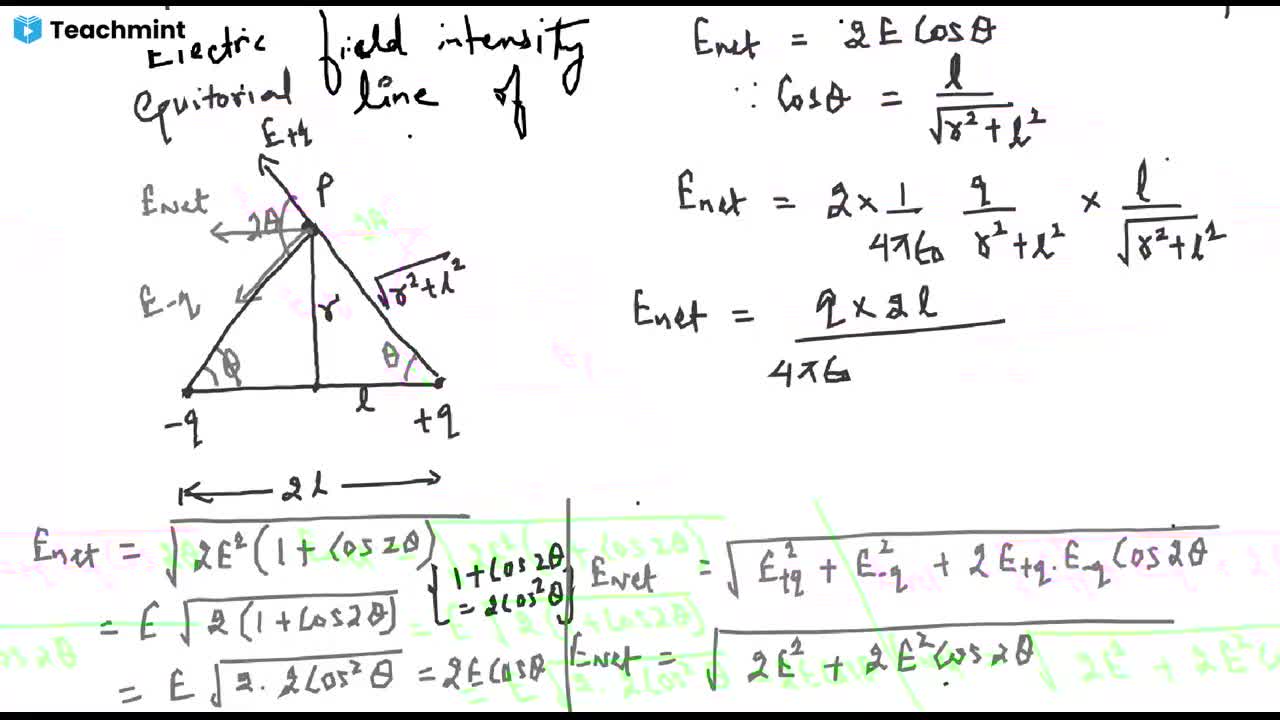 Teachmint
Electric field intensity
equitorial line of
E+q
P
Enet
2θ
E-q
r
√r²+l²
θ
θ
l
-q
+q
2l
Enet = 2E Cosθ
∵ Cosθ = l/√r²+l²
Enet = 2 × 1/4πε₀ q/r²+l² × l/√r²+l²
Enet = q × 2l/4πε₀
Enet = √2E²(1+Cos2θ)
= E √2(1+Cos2θ)
= E √2.2Cos²θ = 2E Cosθ
{1+Cos2θ
= 2Cos²θ}
Enet = √E²+q + E²-q + 2E+q.E-q Cos2θ
Enet = √2E² + 2E² Cos 2θ